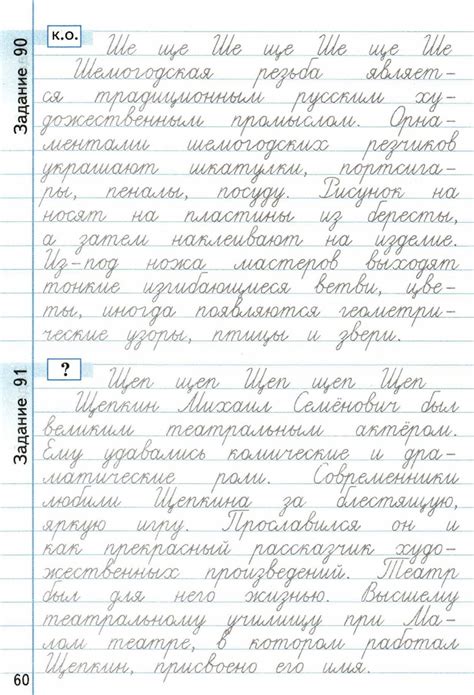 Задание 90
к.о.
Ше ще Ше ще Ше ще Ше
Шемогодская резьба являет-
ся традиционным русским ху-
дожественным промыслом. Орна-
ментами шемогодских резчиков
украшают шкатулки, портсига-
ры, пеналы, посуду. Рисунок на
носят на пластины из бересты,
а затем наклеивают на изделие.
Из-под ножа мастеров выходят
тонкие изгибающиеся ветви, цве-
ты, иногда появляются геометри-
ческие узоры, птицы и звери.
Задание 91
?
Щеп щеп Щеп щеп Щеп
Щепкин Михаил Семёнович был
великим театральным актёром.
Ему удавались комические и дра-
матические роли. Современники
любили Щепкина за блестящую,
яркую игру. Прославился он и
как прекрасный рассказчик худо-
жественных произведений. Театр
был для него жизнью. Высшему
театральному училищу при Ма-
лом театре, в котором работал
Щепкин, присвоено его имя.
60